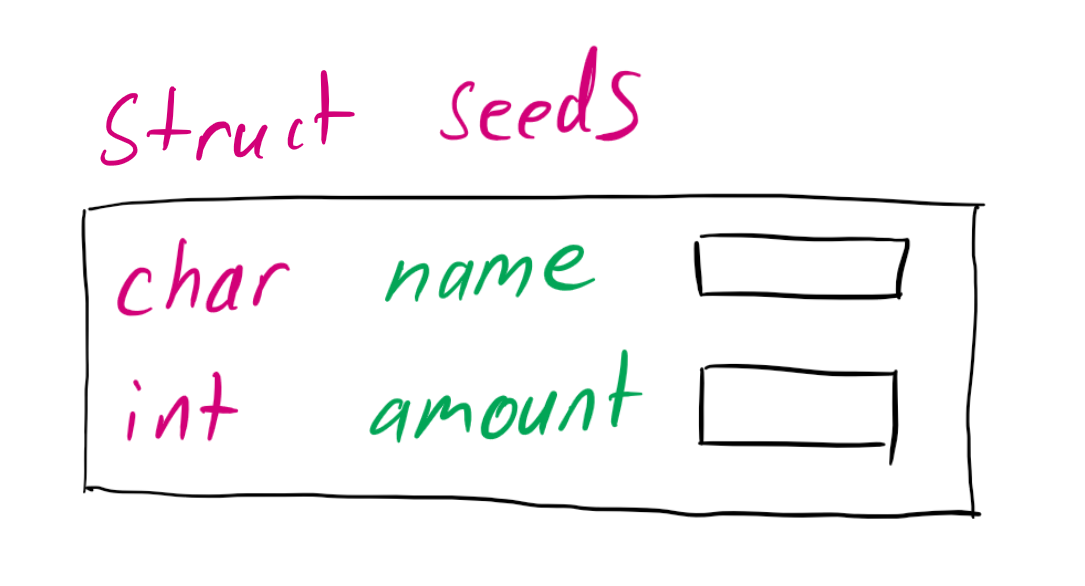 struct seeds
char name
int amount